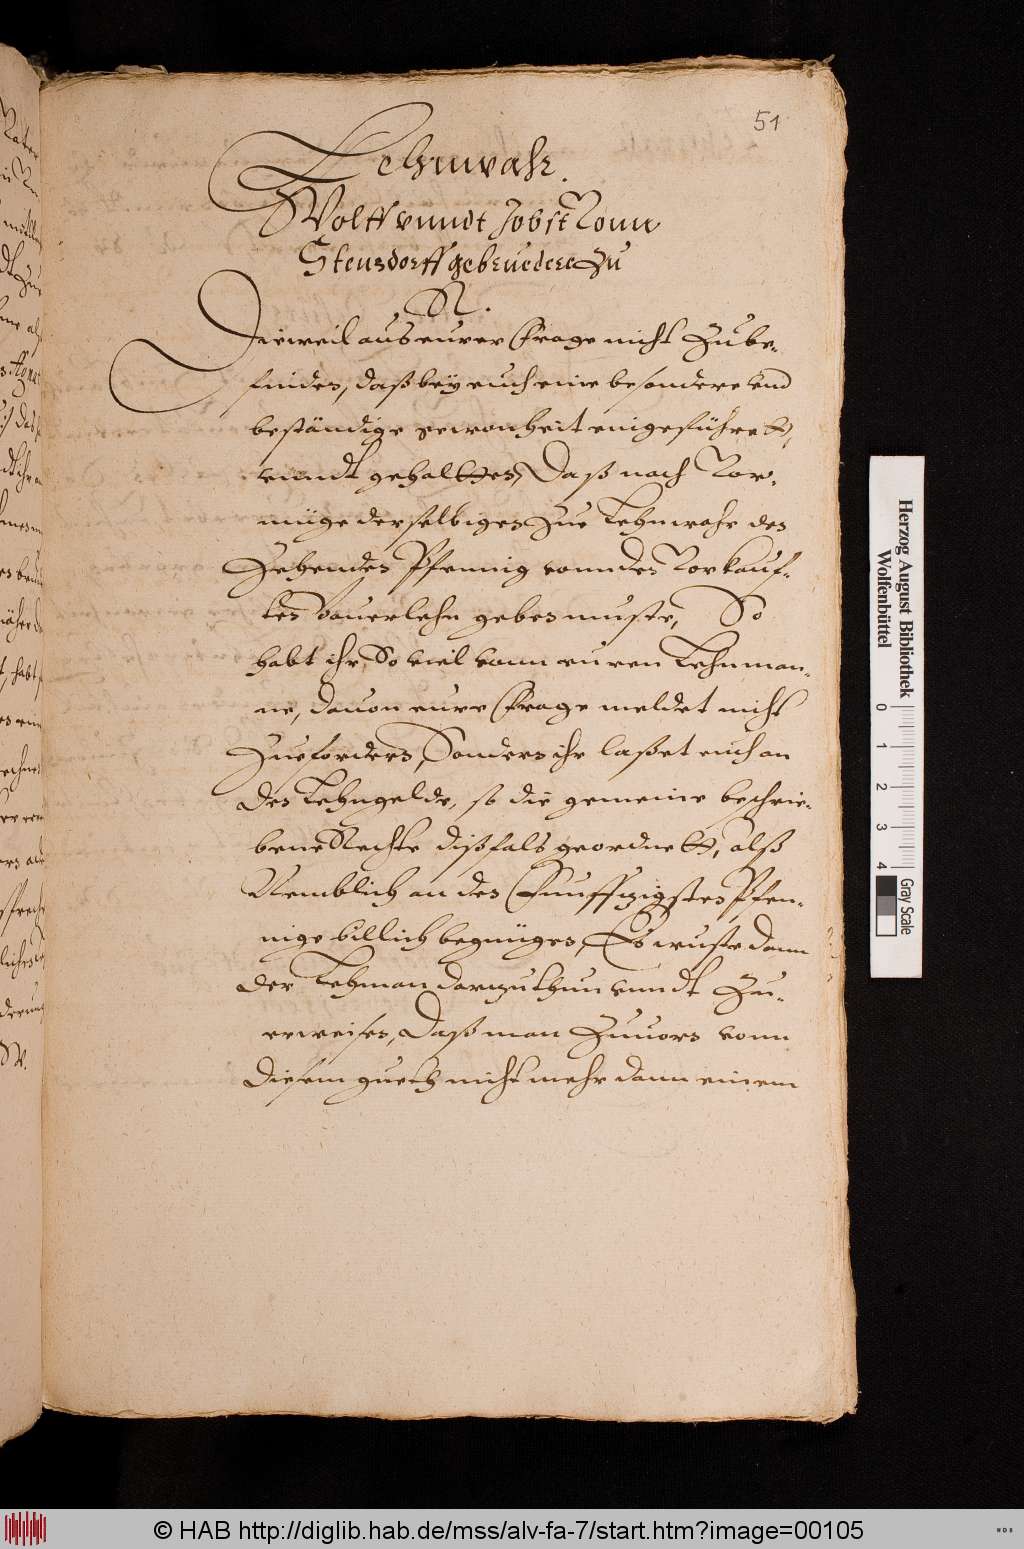 51
Lehnwahr.
Wolff vnndt Jobst Vonn
Stensdorff gebruedere Zu
N.
Dieweil aus eurer Frage nicht Zube-
finden, daß bey euch eine besondere vnd
beständige gewonheit eingeführett,
vnndt gehaltten, Daß nach Vor-
müge derselbigen Zue Lehnwahr den
Zehenden Pfennig vonn den Vorkauf-
ten Bauerlehn geben muste, So
habt ihr, So viel vonn euren Lehnman-
ne, dauon eure Frage meldet nicht
Zuefordern, Sondern ihr laßet euch an
den Lehngelde, so die gemeine beschrie-
bene Rechte dißfals geordnett, alß
Nemblich an den Funffzigsten Pfen-
nige billich begnügen, Es wuste dann
der Lehman darzuthun vnndt Zu-
erweisen, Daß man Zuuorn vonn
diesem gueth nicht mehr dann einem
Herzog August Bibliothek
Wolfenbüttel
0 1 2 3 4
Gray Scale
© HAB http://diglib.hab.de/mss/alv-fa-7/start.htm?image=00105